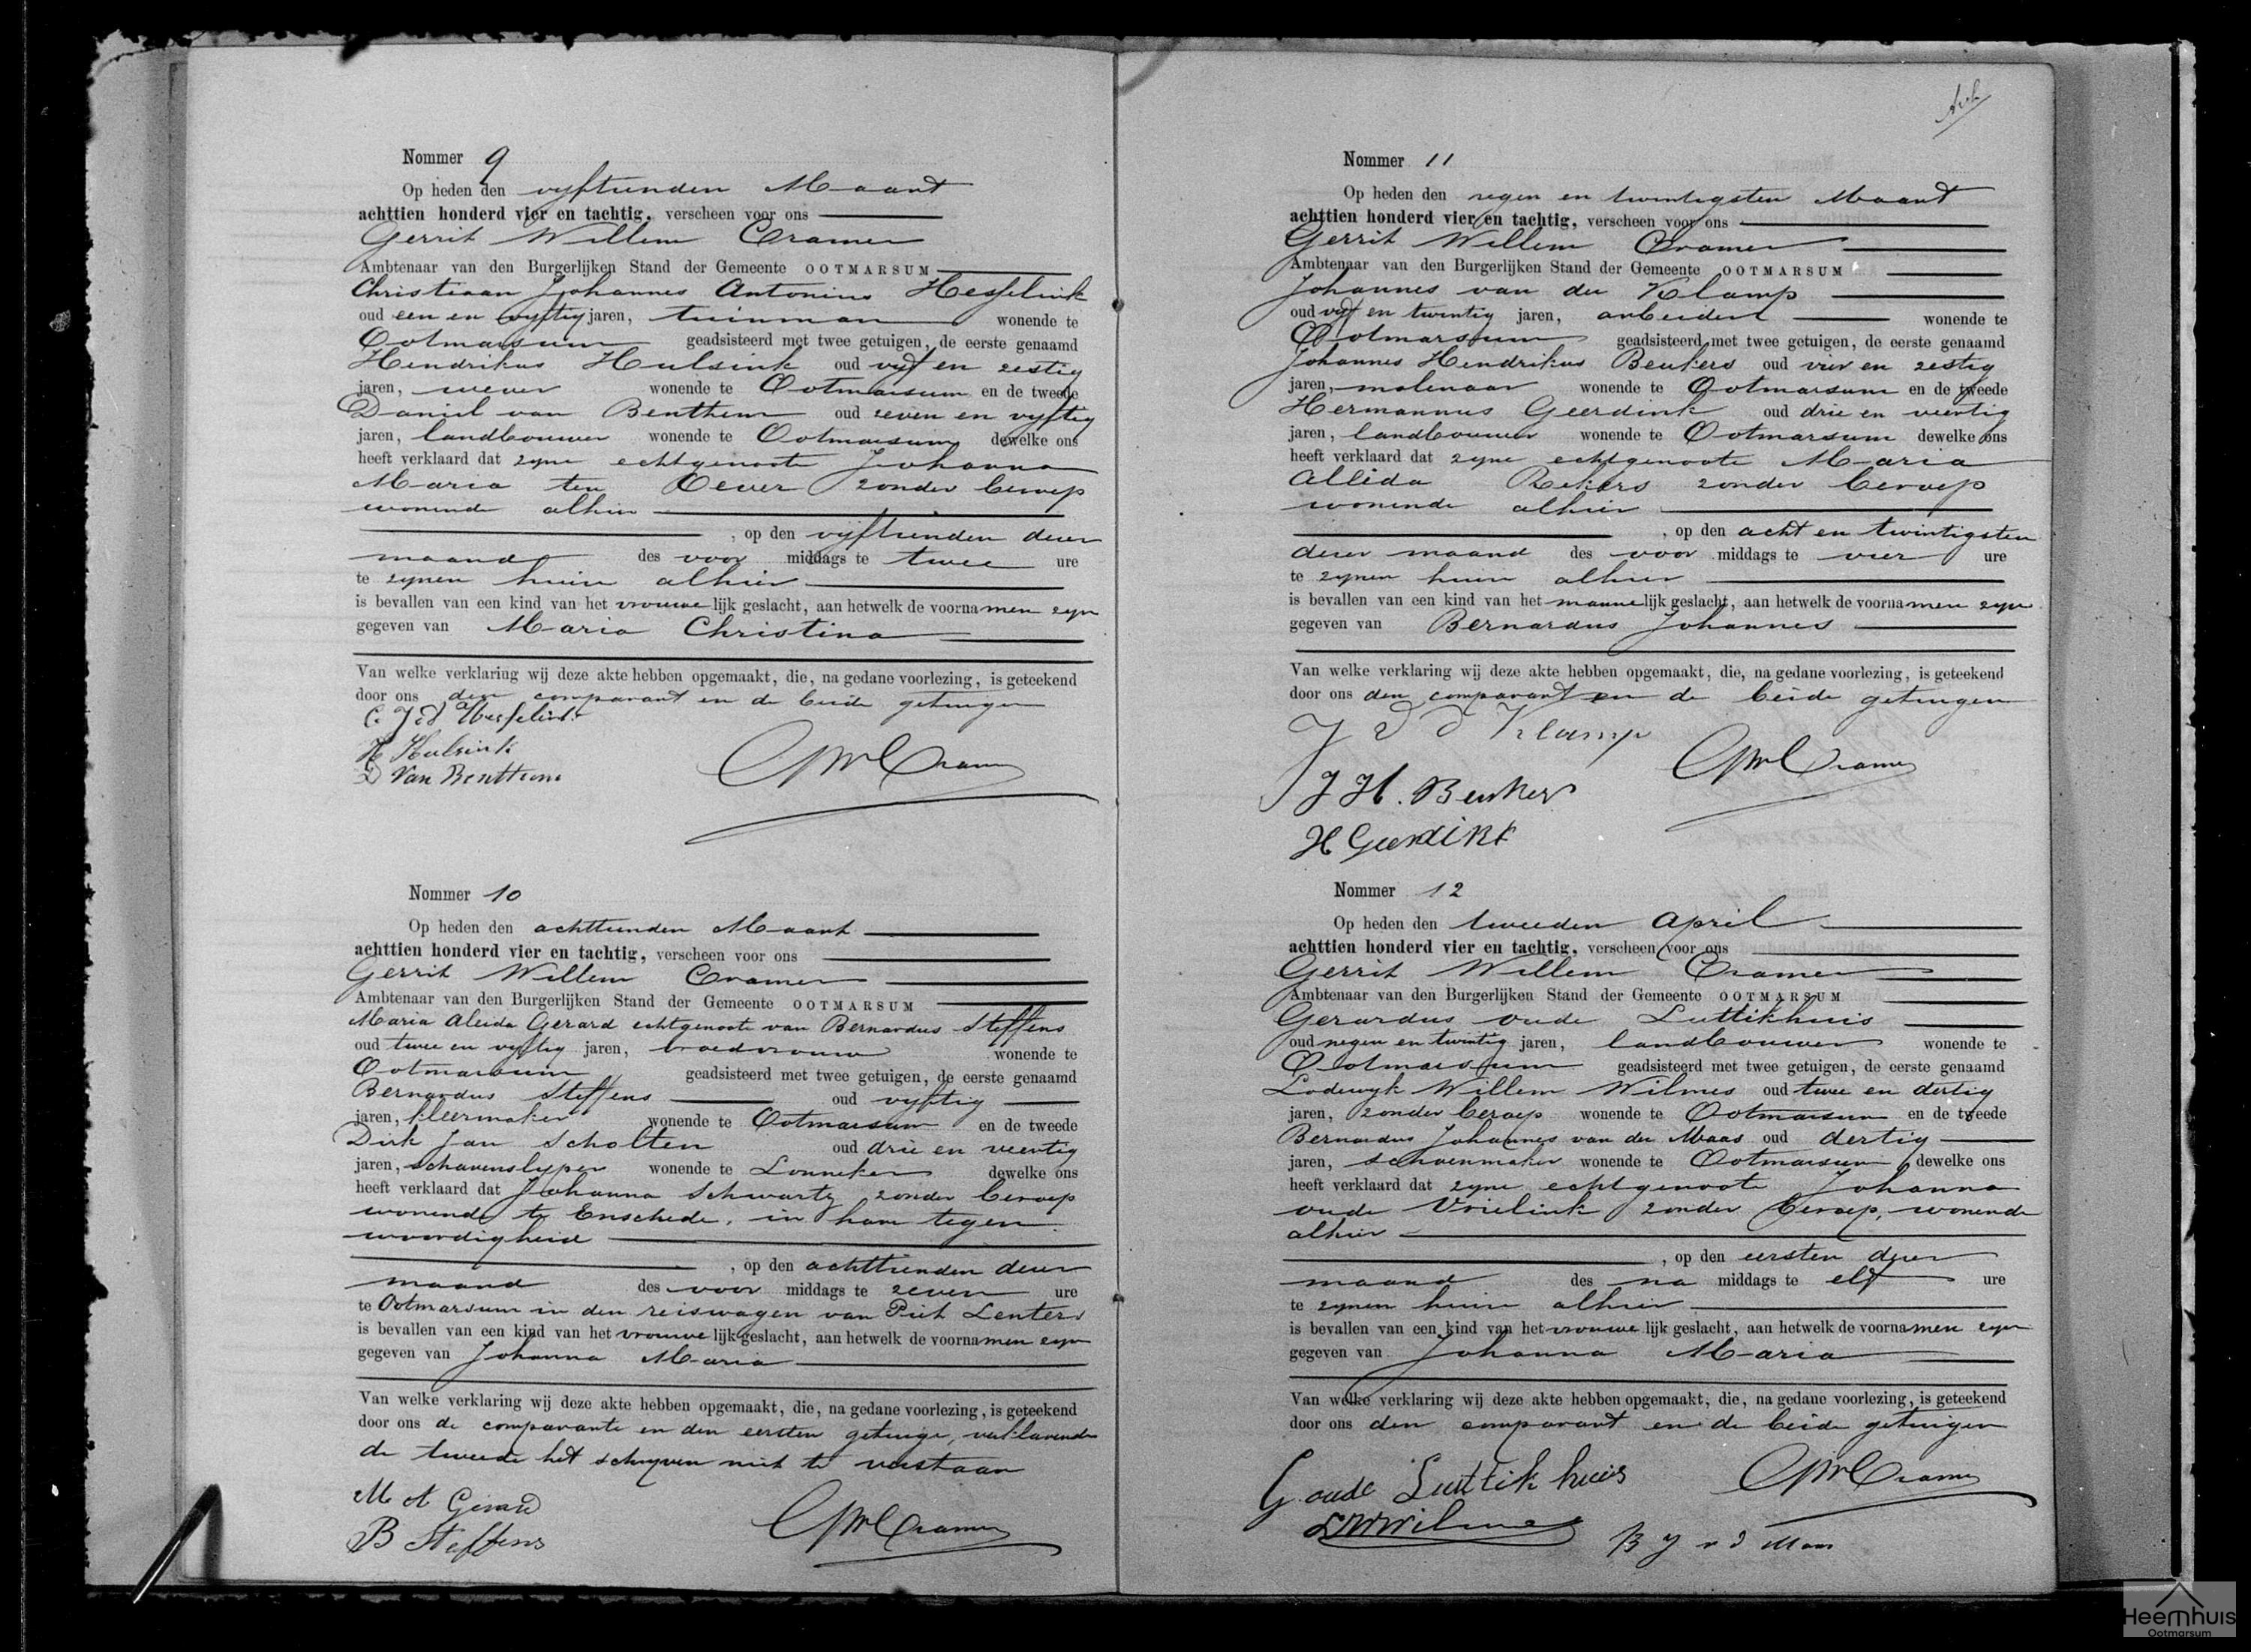 Nommer 9
Op heden den vyftienden Maart
achttien honderd vier en tachtig, verscheen voor ons
Gerrit Willem Cramer
Ambtenaar van den Burgerlijken Stand der Gemeente OOTMARSUM
Christiaan Johannes Antonius Hesselink
oud een en vyftig jaren, tuinman wonende te
Ootmarsum geadsisteerd met twee getuigen, de eerste genaamd
Hendrikus Hulsink oud vyf en zestig
jaren, wever wonende te Ootmarsum en de tweede
Daniel van Benthem oud zeven en vyftig
jaren, landbouwer wonende te Ootmarsum dewelke ons
heeft verklaard dat zyne echtgenoote Johanna
Maria ten Oever zonder beroep
wonende alhier
, op den vyftienden dezer
maand des voor middags te twee ure
te zynen huize alhier
is bevallen van een kind van het vrouwelijk geslacht, aan hetwelk de voornamen zyn
gegeven van Maria Christina
Van welke verklaring wij deze akte hebben opgemaakt, die, na gedane voorlezing, is geteekend
door ons den comparant en de beide getuigen
C. J. A Hesselink
H Hulsink
D Van Benthem
GWCramer
Nommer 10
Op heden den achttienden Maart
achttien honderd vier en tachtig, verscheen voor ons
Gerrit Willem Cramer
Ambtenaar van den Burgerlijken Stand der Gemeente OOTMARSUM
Maria Aleida Gerard echtgenoote van Bernardus Steffens
oud twee en vyftig jaren, vroedvrouw wonende te
Ootmarsum geadsisteerd met twee getuigen, de eerste genaamd
Bernardus Steffens oud vyftig
jaren, kleermaker wonende te Ootmarsum en de tweede
Dirk Jan Scholten oud drie en veertig
jaren, scharenslyper wonende te Lonneker dewelke ons
heeft verklaard dat Johanna Schwartz zonder beroep
wonende te Enschede, in haar tegen
woordigheid
, op den achttienden dezer
maand des voor middags te zeven ure
te Ootmarsum in den reiswagen van Piet Lenters
is bevallen van een kind van het vrouwelijk geslacht, aan hetwelk de voornamen zyn
gegeven van Johanna Maria
Van welke verklaring wij deze akte hebben opgemaakt, die, na gedane voorlezing, is geteekend
door ons de comparante en den eersten getuige, verklarende
de tweede het schryven niet te verstaan
M A Gerard
B Steffens
GWCramer
Nommer 11
Op heden den negen en twintigsten Maart
achttien honderd vier en tachtig, verscheen voor ons
Gerrit Willem Cramer
Ambtenaar van den Burgerlijken Stand der Gemeente OOTMARSUM
Johannes van der Klamp
oud vyf en twintig jaren, arbeider wonende te
Ootmarsum geadsisteerd met twee getuigen, de eerste genaamd
Johannes Hendrikus Beukers oud vier en zestig
jaren, molenaar wonende te Ootmarsum en de tweede
Hermannus Geerdink oud drie en veertig
jaren, landbouwer wonende te Ootmarsum dewelke ons
heeft verklaard dat zyne echtgenoote Maria
Allida Rekers zonder beroep
wonende alhier
, op den acht en twintigsten
dezer maand des voor middags te vier ure
te zynen huize alhier
is bevallen van een kind van het mannelijk geslacht, aan hetwelk de voornamen zyn
gegeven van Bernardus Johannes
Van welke verklaring wij deze akte hebben opgemaakt, die, na gedane voorlezing, is geteekend
door ons den comparant en de beide getuigen
J V D Klamp
J H. Beukers
H Geerdink
GWCramer
Nommer 12
Op heden den tweeden April
achttien honderd vier en tachtig, verscheen voor ons
Gerrit Willem Cramer
Ambtenaar van den Burgerlijken Stand der Gemeente OOTMARSUM
Gerardus oude Luttikhuis
oud negen en twintig jaren, landbouwer wonende te
Ootmarsum geadsisteerd met twee getuigen, de eerste genaamd
Lodewyk Willem Wilmes oud twee en dertig
jaren, zonder beroep wonende te Ootmarsum en de tweede
Bernardus Johannes van der Maas oud dertig
jaren, schoenmaker wonende te Ootmarsum dewelke ons
heeft verklaard dat zyne echtgenoote Johanna
oude Vrielink zonder beroep, wonende
alhier
, op den eersten dezer
maand des na middags te elf ure
te zynen huize alhier
is bevallen van een kind van het vrouwelijk geslacht, aan hetwelk de voornamen zyn
gegeven van Johanna Maria
Van welke verklaring wij deze akte hebben opgemaakt, die, na gedane voorlezing, is geteekend
door ons den comparant en de beide getuigen
G. oude Luttikhuis
LWWilmes
B J v d Maas
GWCramer
Heemhuis
Ootmarsum